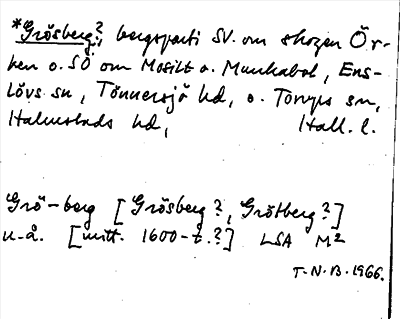 *Grösberg?, bergsparti SV. om skogen Ör-
ken o. SÖ om Mosilt o. Munkabol, Ens-
lövs sn, Tönnersjö hd, o. Torups sn,
Halmstads hd, Hall. l.
Grö-berg [Grösberg?, Grötberg?]
u.å. [mitt. 1600-t.?] LSA M²
T.N.B. 1966.